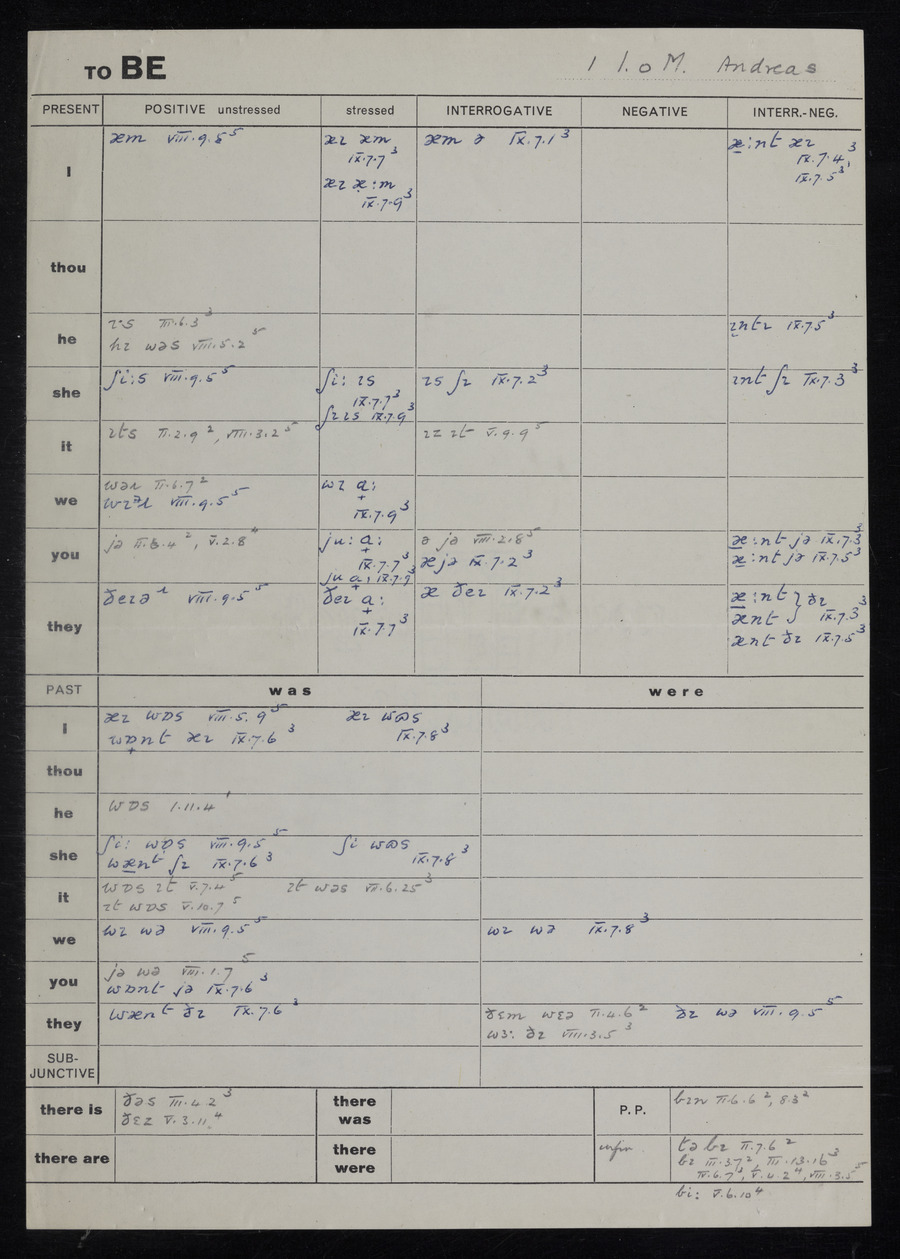 TO BE 1 I.o M. Andreas
PRESENT POSITIVE unstressed stressed INTERROGATIVE NEGATIVE INTERR.-NEG.
I
æm VIII.9.5⁵
æɪ æm
IX.7.7³
æɪ æ:m
IX.7.9³
æm ə IX.7.1³
æ:nt æɪ
IX.7.4³,
IX.7.5³
thou
he
ɪs III.6.3³
hɪ wəs VIII.5.2⁵
ɪntɪ IX.7.5³
she
ʃi:s VIII.9.5⁵
ʃi: ɪs
IX.7.7³
ʃɪ ɪs IX.7.9³
ɪs ʃɪ IX.7.2³
ɪnt ʃɪ IX.7.3³
it
ɪts II.2.9², VIII.3.2⁵
ɪz ɪt V.9.9⁵
we
wəɹ II.6.7²
VIII.9.5⁵
wɪ ɑ:
IX.7.9³
you
jə II.8.4², V.2.8⁴
ju: ɑ:
IX.7.7³
ju ɑ: IX.7.9³
ə jə VIII.2.8⁵
æ jə IX.7.2³
æ:nt jə IX.7.3³
æ:nt jə IX.7.5³
they
ðeɪəɹ VIII.9.5⁵
ðeɪ ɑ:
IX.7.7³
æ ðeɪ IX.7.2³
æ:nt } ðɪ
ænt } IX.7.3³
ænt ðɪ IX.7.5³
PAST was were
I
æɪ wɒs VIII.5.9⁵ æɪ wɒs
wɒnt æɪ IX.7.6³ IX.7.8³
thou
he
wɒs 1.11.4¹
she
ʃi: wɒs VIII.9.5⁵ ʃi wɒs
wænt ʃɪ IX.7.6³ IX.7.8³
it
wɒs ɪt V.7.4⁵ ɪt wəs VII.6.25³
ɪt wɒs V.10.7⁵
we
wɪ wə VIII.9.5⁵
wɪ wə IX.7.8³
you
jə wə VIII.1.7⁵
wɒnt jə IX.7.6³
they
wænt ðɪ IX.7.6³
ðɛm wɛə II.4.6² ðɪ wə VIII.9.5⁵
wɜ: ðɪ VIII.3.5³
SUB-
JUNCTIVE
there is
ðəs III.4.2³
ðɛz V.3.11⁴
there
was
P.P.
bɪn II.6.6², 8.3²
there are
there
were
infin.
tə bɪ II.7.6²
bɪ III.3.7², III.13.16³
IV.6.7³, V.4.2⁴, VIII.3.5⁵
bi: V.6.10⁴